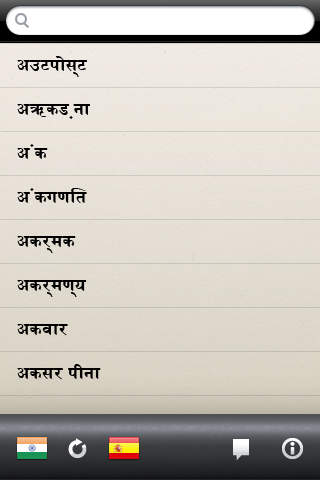 अउटपोस्‌ट
अऋकड़ना
अंक
अंकगणति
अकर्‌मक
अकर्‌मण्‌य
अकवार
अकसर पीना